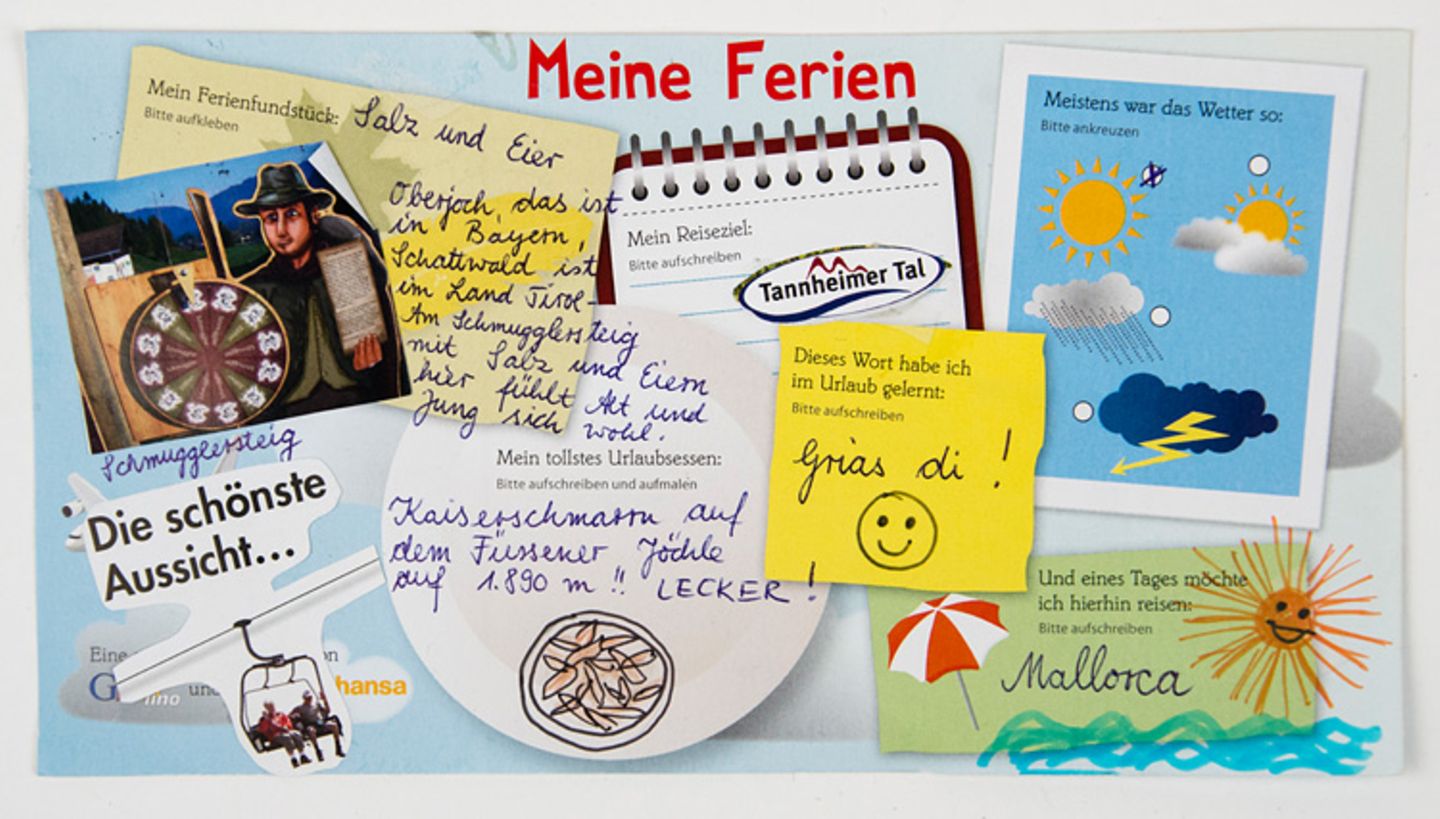 Meine Ferien
Mein Ferienfundstück: Salz und Eier
Bitte aufkleben
Oberjoch, das ist
in Bayern,
Schattwald ist
im Land Tirol-
Am Schmugglersteig
mit Salz und Eiern
hier fühlt Alt und
Jung sich wohl.
Schmugglersteig
Die schönste
Aussicht...
Eine
und
lino
hansa
Mein Reiseziel:
Bitte aufschreiben
Tannheimer Tal
Mein tollstes Urlaubsessen:
Bitte aufschreiben und aufmalen
Kaiserschmarrn auf
dem Füssener Jöchle
auf 1.890 m !! LECKER !
Dieses Wort habe ich
im Urlaub gelernt:
Bitte aufschreiben
Grias di !
Meistens war das Wetter so:
Bitte ankreuzen
Und eines Tages möchte
ich hierhin reisen:
Bitte aufschreiben
Mallorca